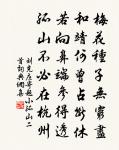 梅花種子無窮盡
和靖何曾占斷休
若向鼻端參得透
孤山不必在杭州
劉克莊寄題小孤山二
首詞典網集